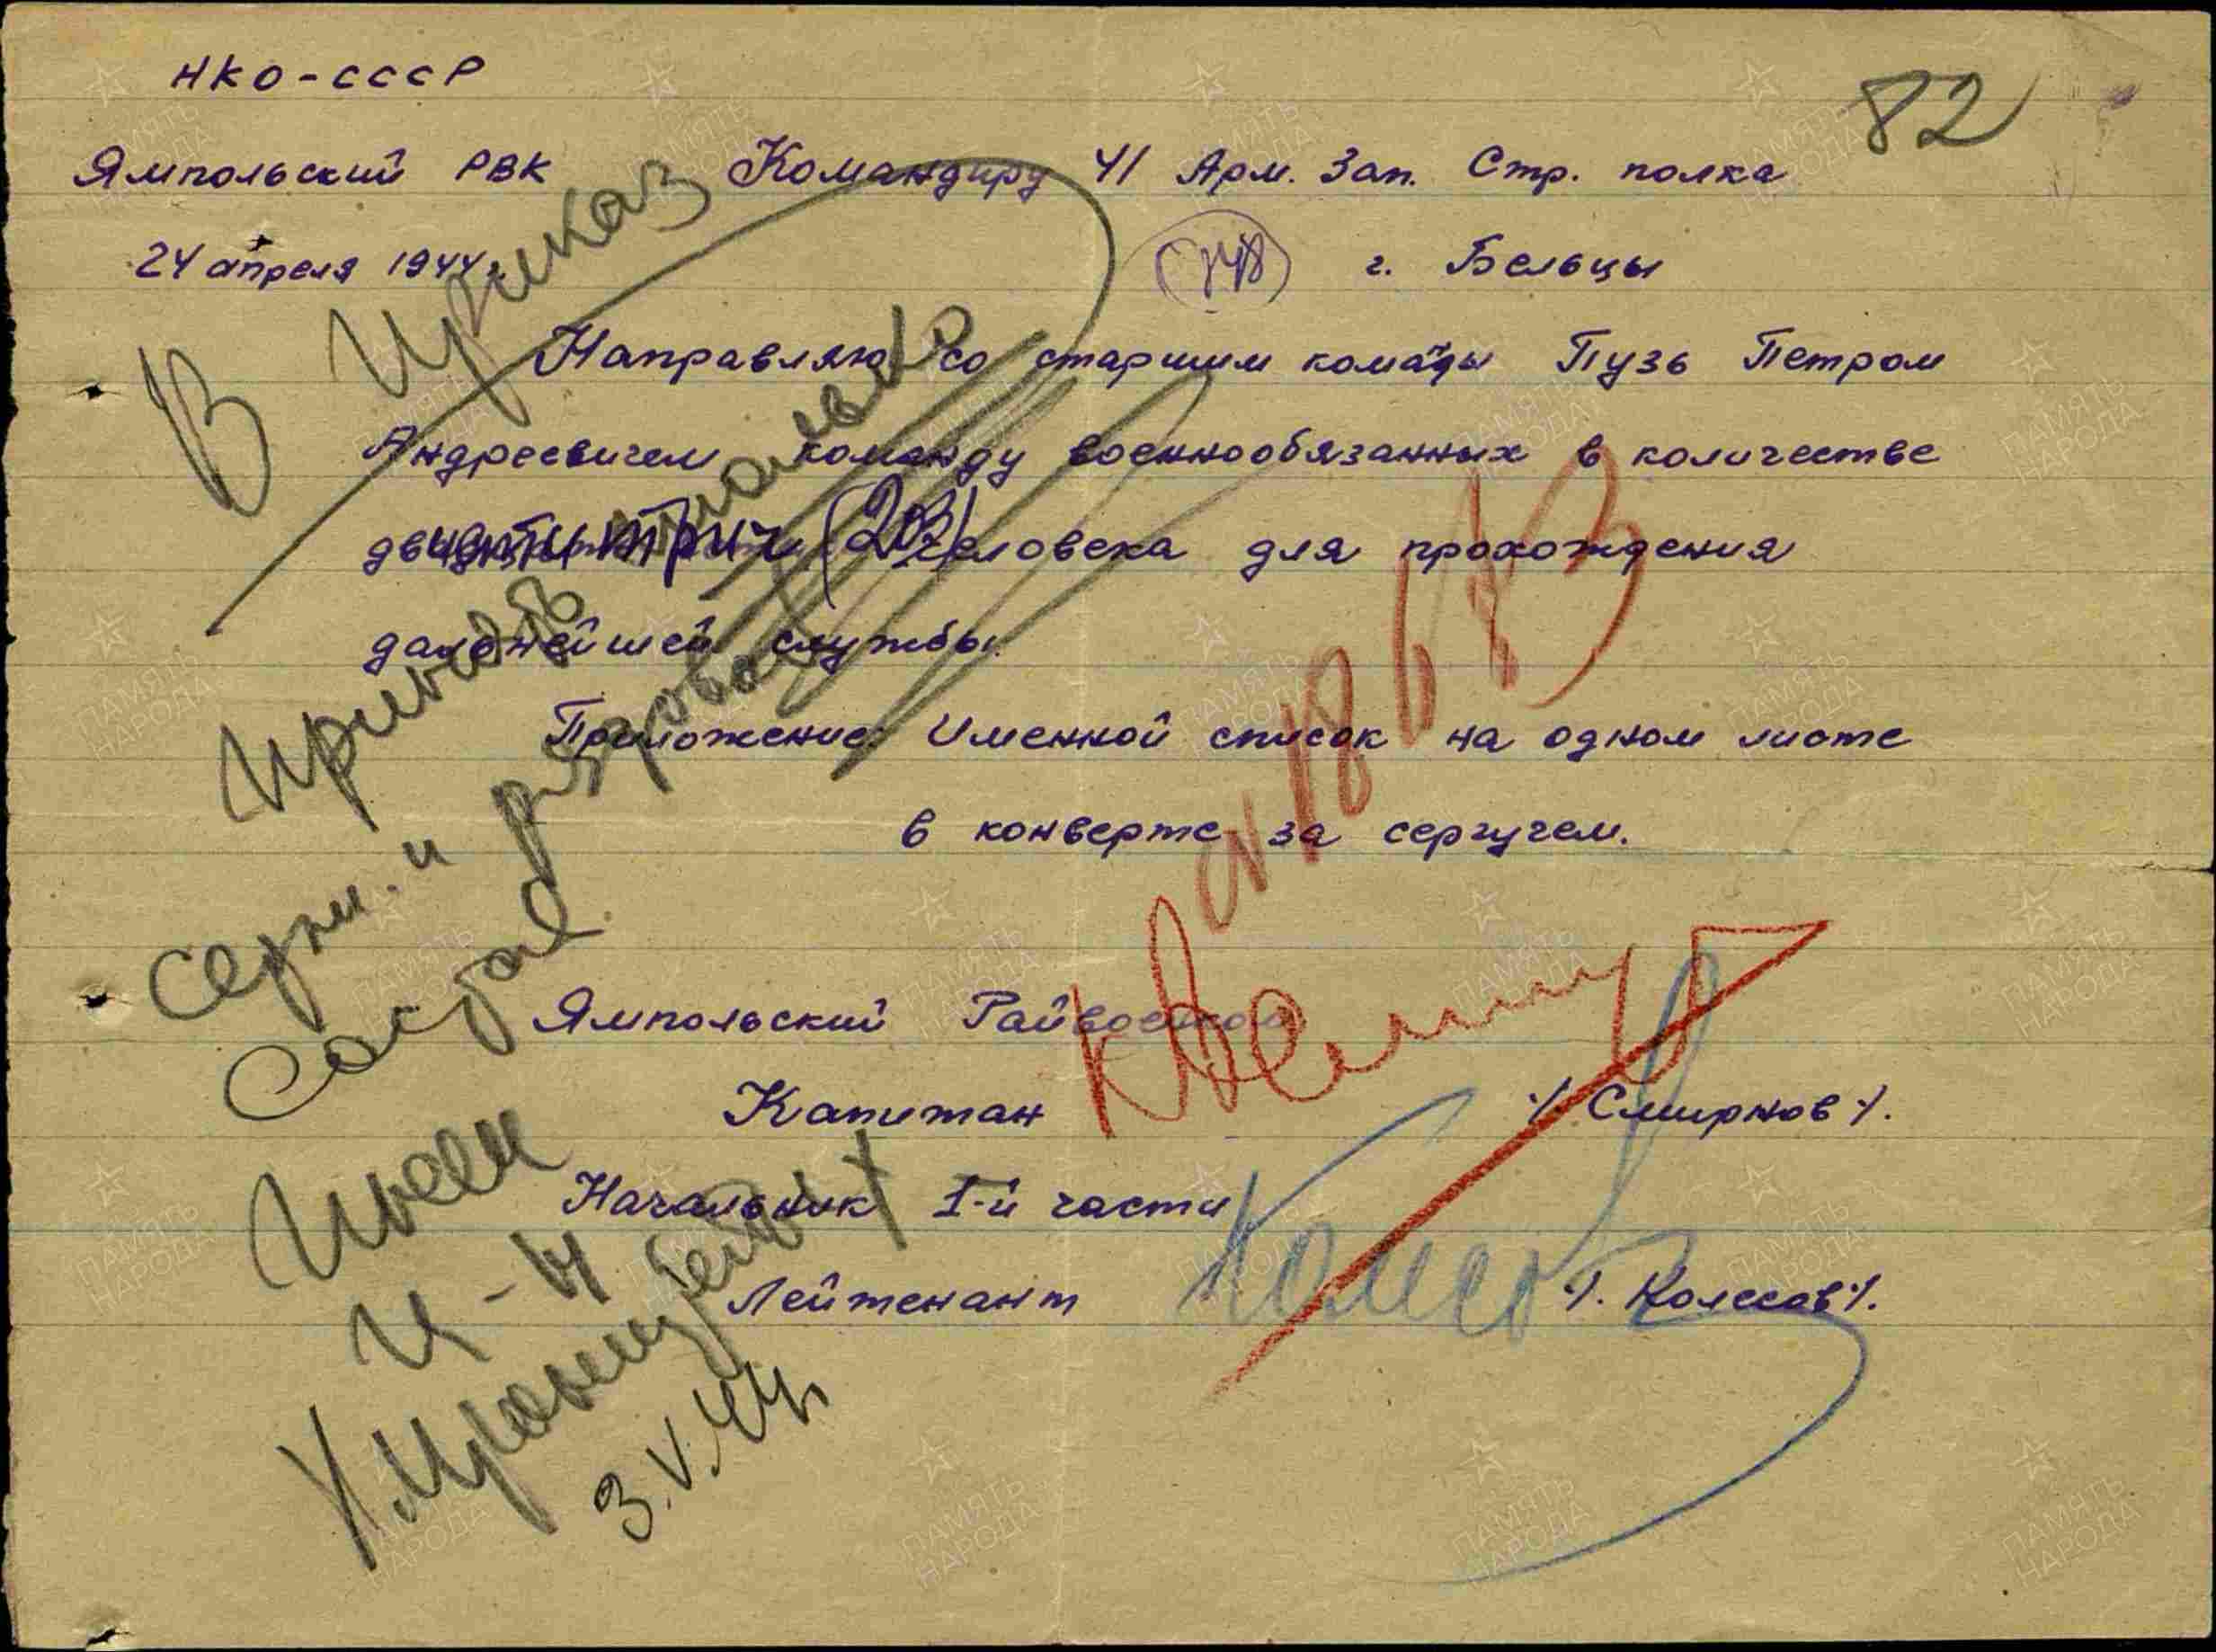 НКО-СССР
82
Ямпольский РВК Командиру 41 Арм. Зап. Стр. полка
24 апреля 1944г. г. Бельцы
В приказ
Направляю со старшим команды Пузь Петром
Андреевичем команду военнообязанных в количестве
человека для прохождения
дальнейшей службы.
Принять только
серж. и рядовой
состав
Приложение: Именной список на одном листе
в конверте за сергучем.
Ямпольский Райвоенком
Капитан /. Смирнов /.
Начальник 1-й части
Лейтенант /. Колесов /.
3.V.44г
ПАМЯТЬ НАРОДА